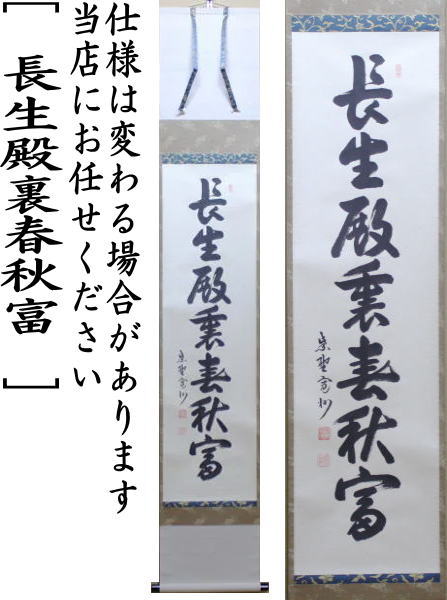 仕様は変わる場合があります
当店にお任せください
［ 長生殿裏春秋富 ］
長生殿裏春秋富
長生殿裏春秋富